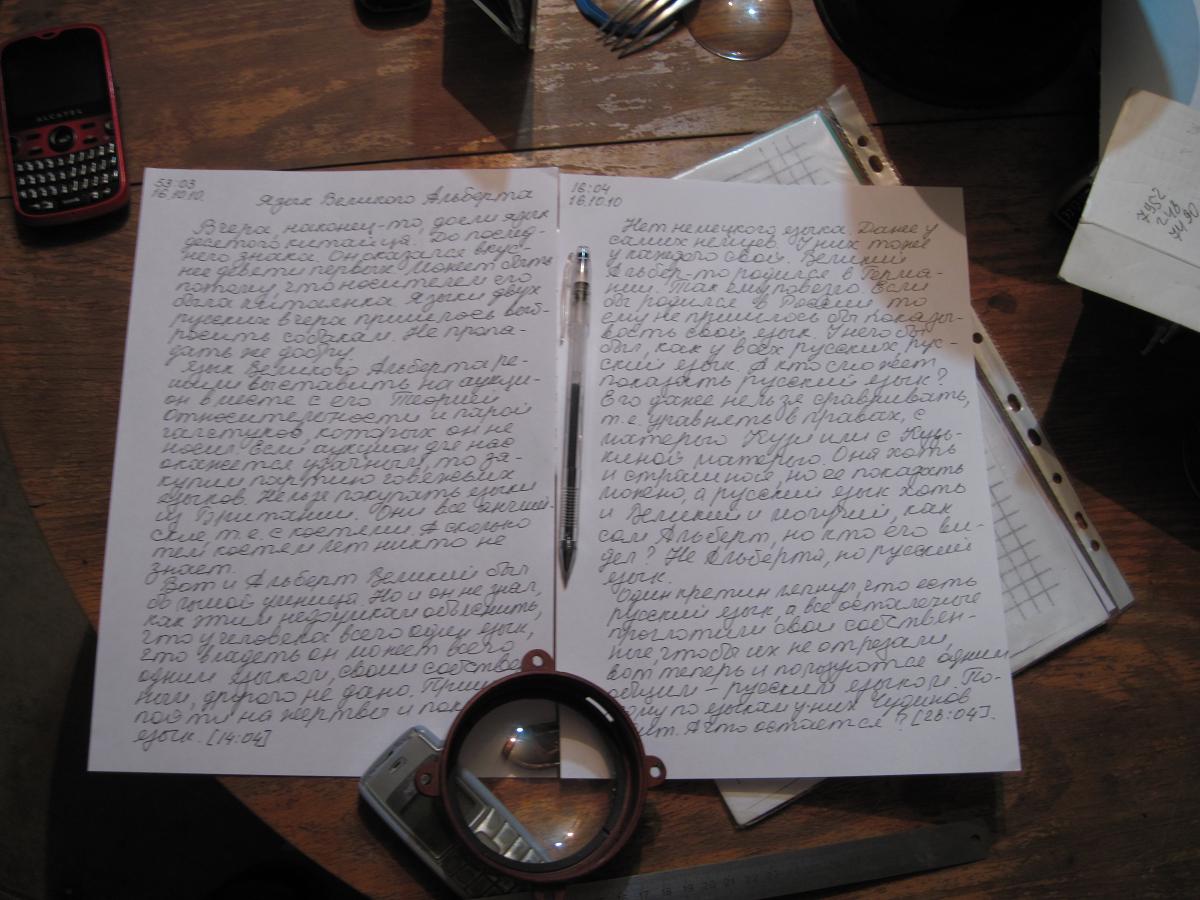 ALCATEL
53:03
16.10.10.
Язык Великого Альберта
Вчера, наконец-то, доели язык
десятого китайца. До послед-
него знака. Он оказался вкус-
нее девяти первых. Может быть
потому, что носителем его
была китаянка. Языки двух
русских вчера пришлось выб-
росить собакам. Не пропа-
дать же добру.
Язык Великого Альберта ре-
шили выставить на аукци-
он вместе с его Теорией
Относительности и парой
галстуков, которых он не
носил. Если аукцион для нас
окажется удачным, то за-
купим партию говяжьих
языков. Нельзя покупать языки
из Британии. Они все англий-
ские, т.е. с костями. А сколько
тем костям лет никто не
знает.
Вот и Альберт Великий был
Но и он не знал,
как этим недоумкам объяснить,
что у человека всего один язык,
что владеть он может всего
одним языком, своим собстве
ным, другого не дано. Приш
пойти на жертвы и пок
язык. [14:04]
16:04
16.10.10
Нет немецкого языка. Даже у
самих немцев. У них тоже
у каждого свой. Великий
Альбер-то родился в Герма-
нии. Так ему повезло. Если
бы родился в России, то
ему не пришлось бы показы-
вать свой язык. У него бы
был, как у всех русских, рус-
ский язык. А кто сможет
показать русский язык?
Его даже нельзя сравнивать,
т.е. уравнять в правах, с
матерью Кузи или с Кузь-
киной матерью. Она хоть
и страшная, но её показать
можно, а русский язык хоть
и Великий и могучий, как
сам Альберт, но кто его ви-
дел? Не Альберта, но русский
язык.
Один кретин ляпнул, что есть
русский язык, а все остальные
проглотили свои собствен-
ные, чтобы их не отрезали,
вот теперь и пользуются одним
общим - русским языком. По-
тому по языкам у них Чудинов
А что остается? [28:04].
7952
248
4490
17 18 19 20 21 22